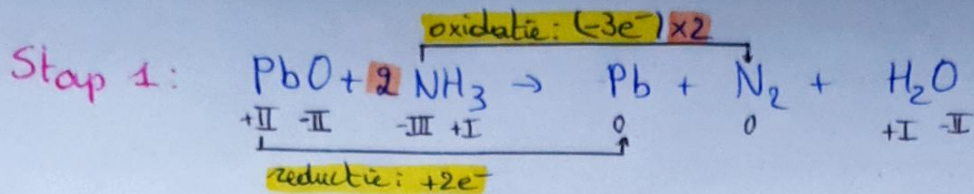 oxidatie: (-3e⁻) ×2
Stap 1: PbO + 2 NH₃ → Pb + N₂ + H₂O
+II -II -III +I 0 0 +I -II
reductie: +2e⁻